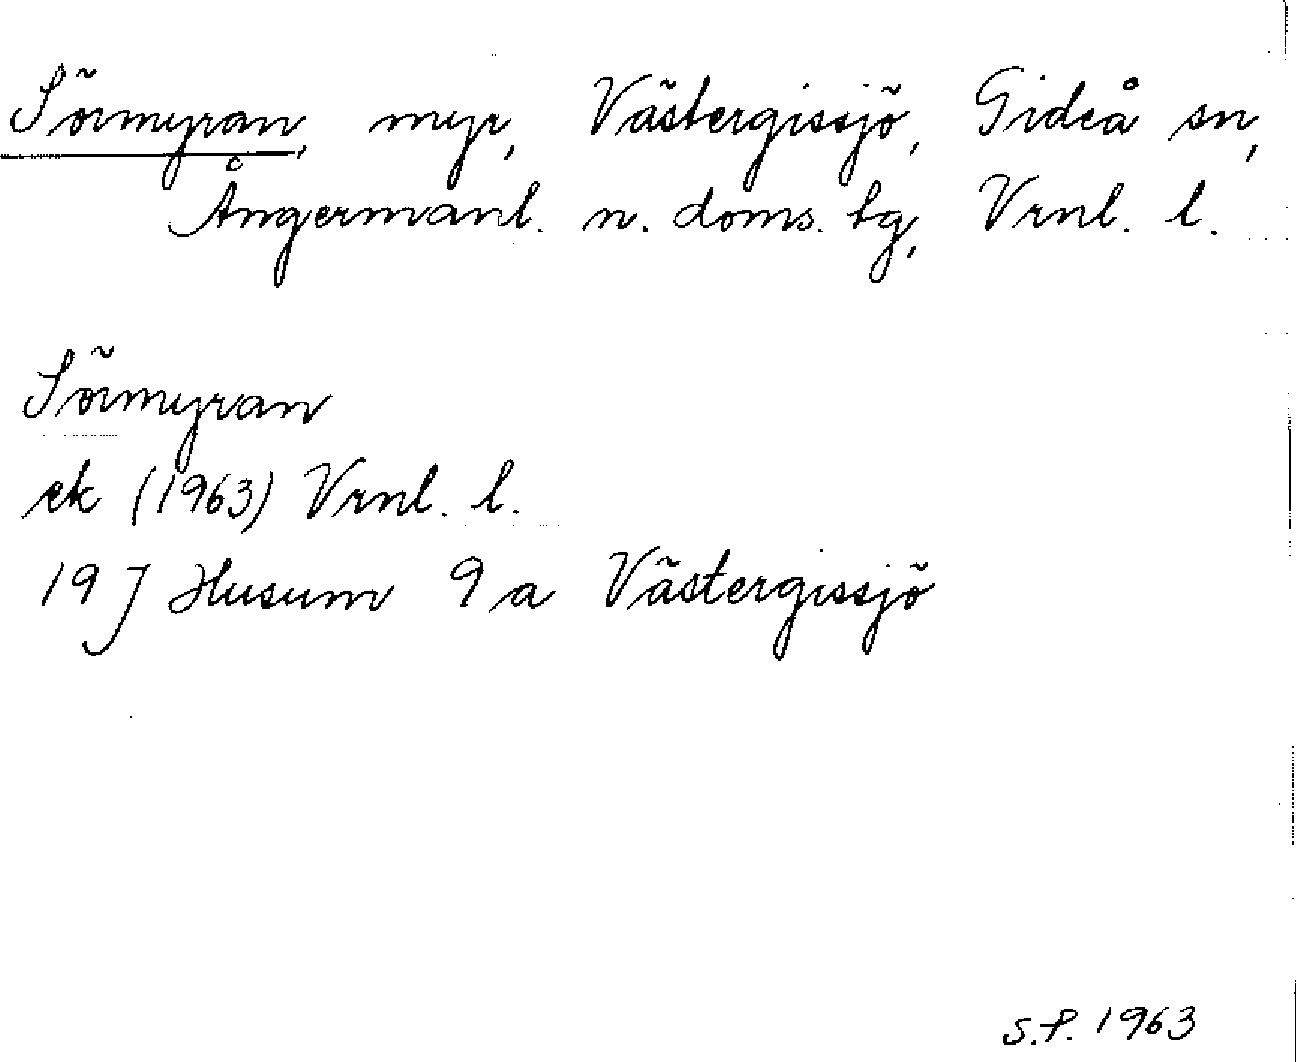 Sörmyran, myr, Västergissjö, Gideå sn,
Ångermanl. n. doms. tg, Vrnl. l.
Sörmyran
ek (1963) Vrnl. l.
19 J Husum 9 a Västergissjö
S.P. 1963